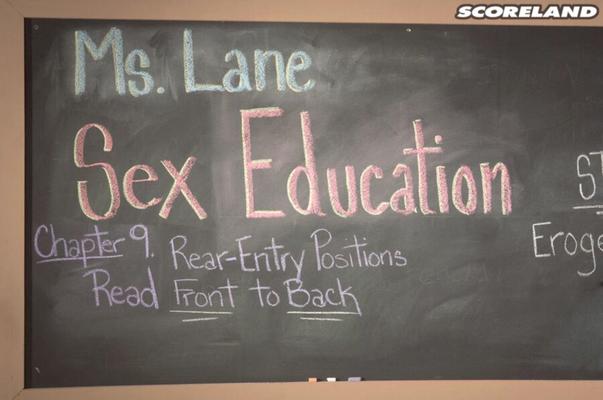 SCORELAND
Ms. Lane
Sex Education
Chapter 9. Rear-Entry Positions
Read Front to Back